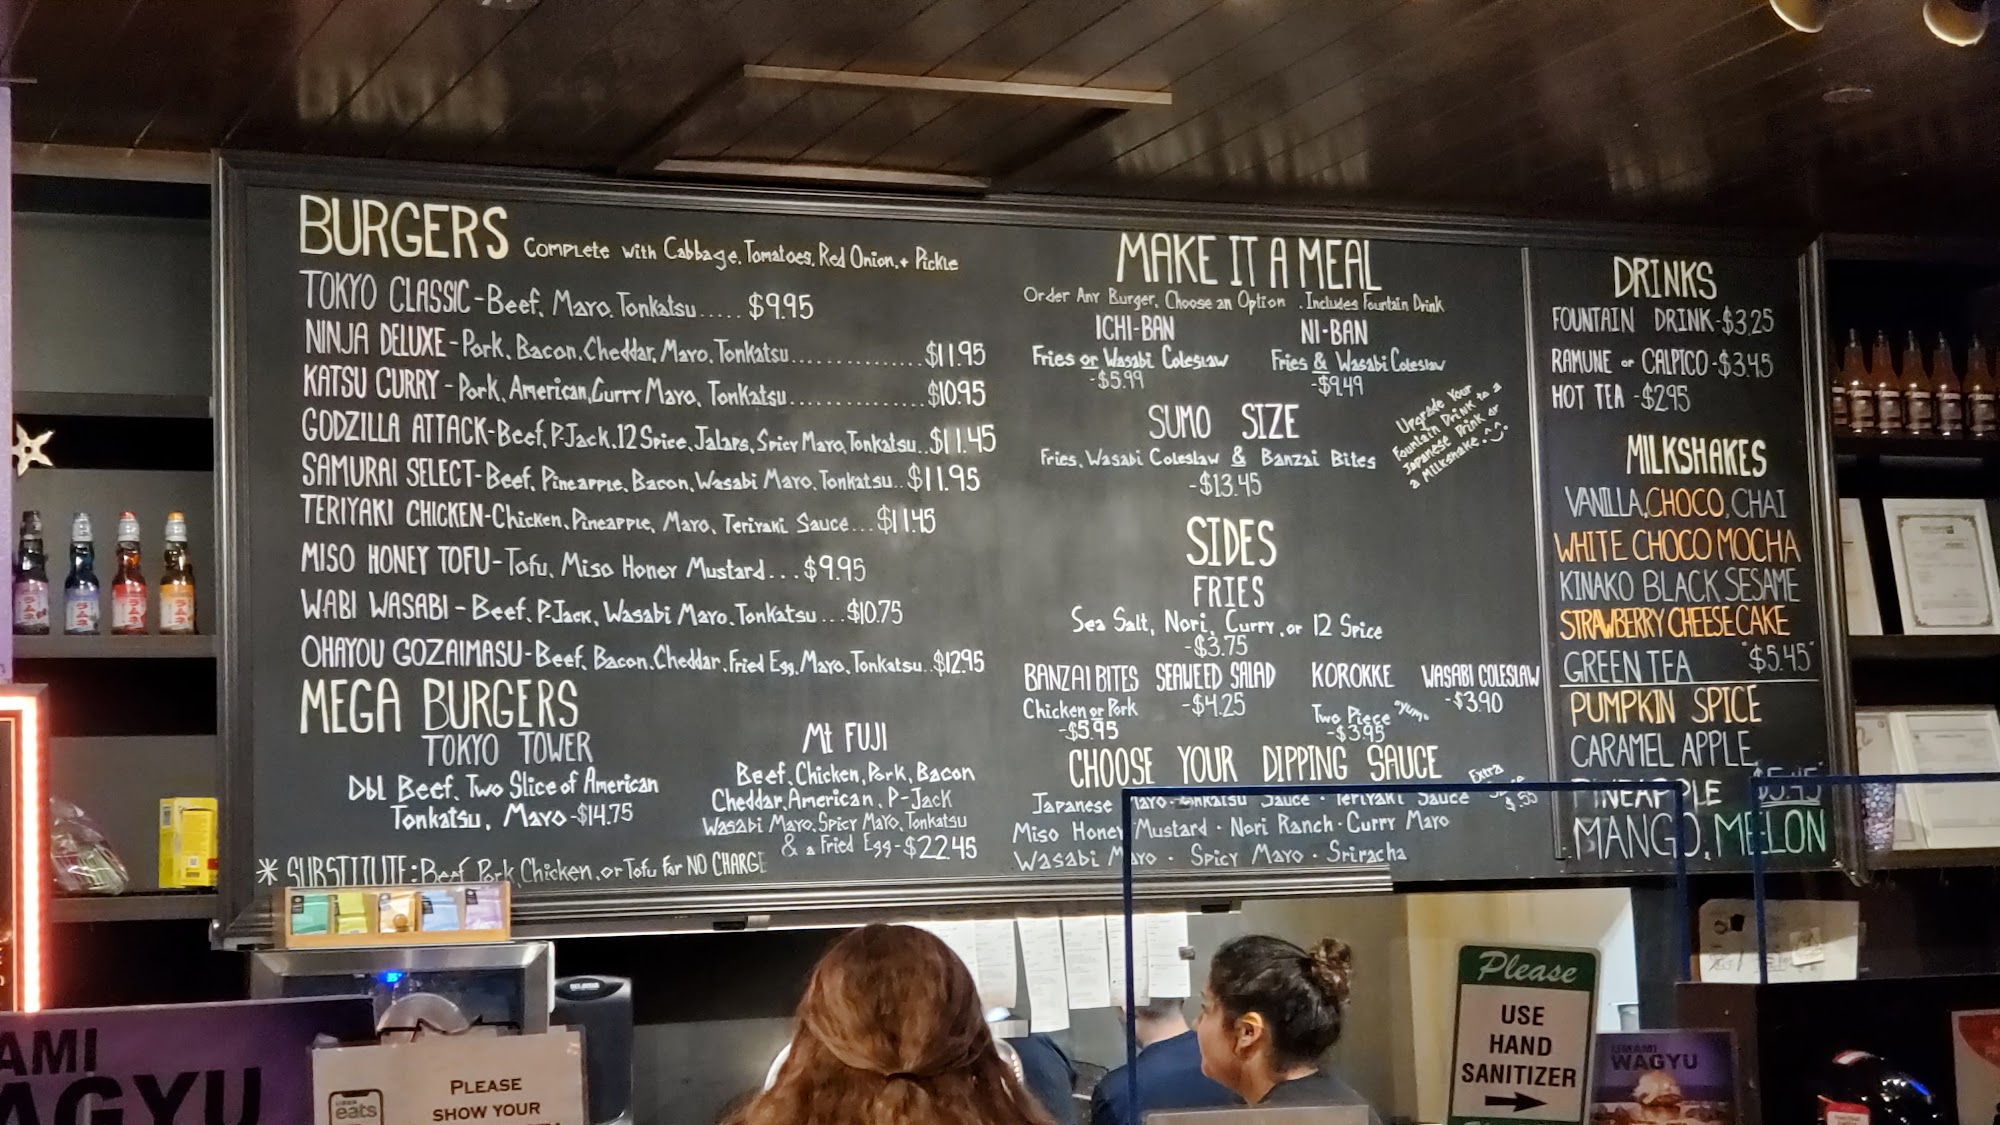 BURGERS Complete with Cabbage, Tomatoes, Red Onion, + Pickle
TOKYO CLASSIC-Beef, Mayo, Tonkatsu..... $9.95
NINJA DELUXE-Pork, Bacon, Cheddar, Mayo, Tonkatsu...............$11.95
KATSU CURRY-Pork, American, Curry Mayo, Tonkatsu...............$10.95
GODZILLA ATTACK-Beef, P-Jack, 12 Spice, Jalaps, Spicy Mayo, Tonkatsu..$11.45
SAMURAI SELECT-Beef, Pineapple, Bacon, Wasabi Mayo, Tonkatsu..$11.95
TERIYAKI CHICKEN-Chicken, Pineapple, Mayo, Teriyaki Sauce...$11.45
MISO HONEY TOFU-Tofu, Miso Honey Mustard...$9.95
WABI WASABI-Beef, P-Jack, Wasabi Mayo, Tonkatsu...$10.75
OHAYOU GOZAIMASU-Beef, Bacon, Cheddar, Fried Egg, Mayo, Tonkatsu..$12.95
MEGA BURGERS
TOKYO TOWER
Dbl Beef, Two Slice of American
Tonkatsu, Mayo-$14.75
Mt FUJI
Beef, Chicken, Pork, Bacon
Cheddar, American, P-Jack
Wasabi Mayo, Spicy Mayo, Tonkatsu
& a Fried Egg-$22.45
* SUBSTITUTE: Beef, Pork, Chicken, or Tofu for NO CHARGE
MAKE IT A MEAL
Order Any Burger, Choose an Option. Includes Fountain Drink
ICHI-BAN
Fries or Wasabi Coleslaw
-$5.99
NI-BAN
Fries & Wasabi Coleslaw
-$9.49
SUMO SIZE
Fries, Wasabi Coleslaw & Banzai Bites
-$13.45
Upgrade Your
Fountain Drink to a
Japanese Drink or
a Milkshake
SIDES
FRIES
Sea Salt, Nori, Curry, or 12 Spice
-$3.75
BANZAI BITES
Chicken or Pork
-$5.95
SEAWEED SALAD
-$4.25
KOROKKE
Two Piece "Yum"
-$3.95
WASABI COLESLAW
-$3.90
CHOOSE YOUR DIPPING SAUCE
Extra
$.55
Japanese Mayo · Tonkatsu Sauce · Teriyaki Sauce
Miso Honey Mustard · Nori Ranch · Curry Mayo
Wasabi Mayo · Spicy Mayo · Sriracha
DRINKS
FOUNTAIN DRINK-$3.25
RAMUNE or CALPICO-$3.45
HOT TEA-$2.95
MILKSHAKES
VANILLA, CHOCO, CHAI
WHITE CHOCO MOCHA
KINAKO BLACK SESAME
STRAWBERRY CHEESECAKE
GREEN TEA "$5.45"
PUMPKIN SPICE
CARAMEL APPLE
PINEAPPLE $5.45"
MANGO, MELON
AMI
AGYU
Uber
eats
PLEASE
SHOW YOUR
Please
USE
HAND
SANITIZER
UMAMI
WAGYU